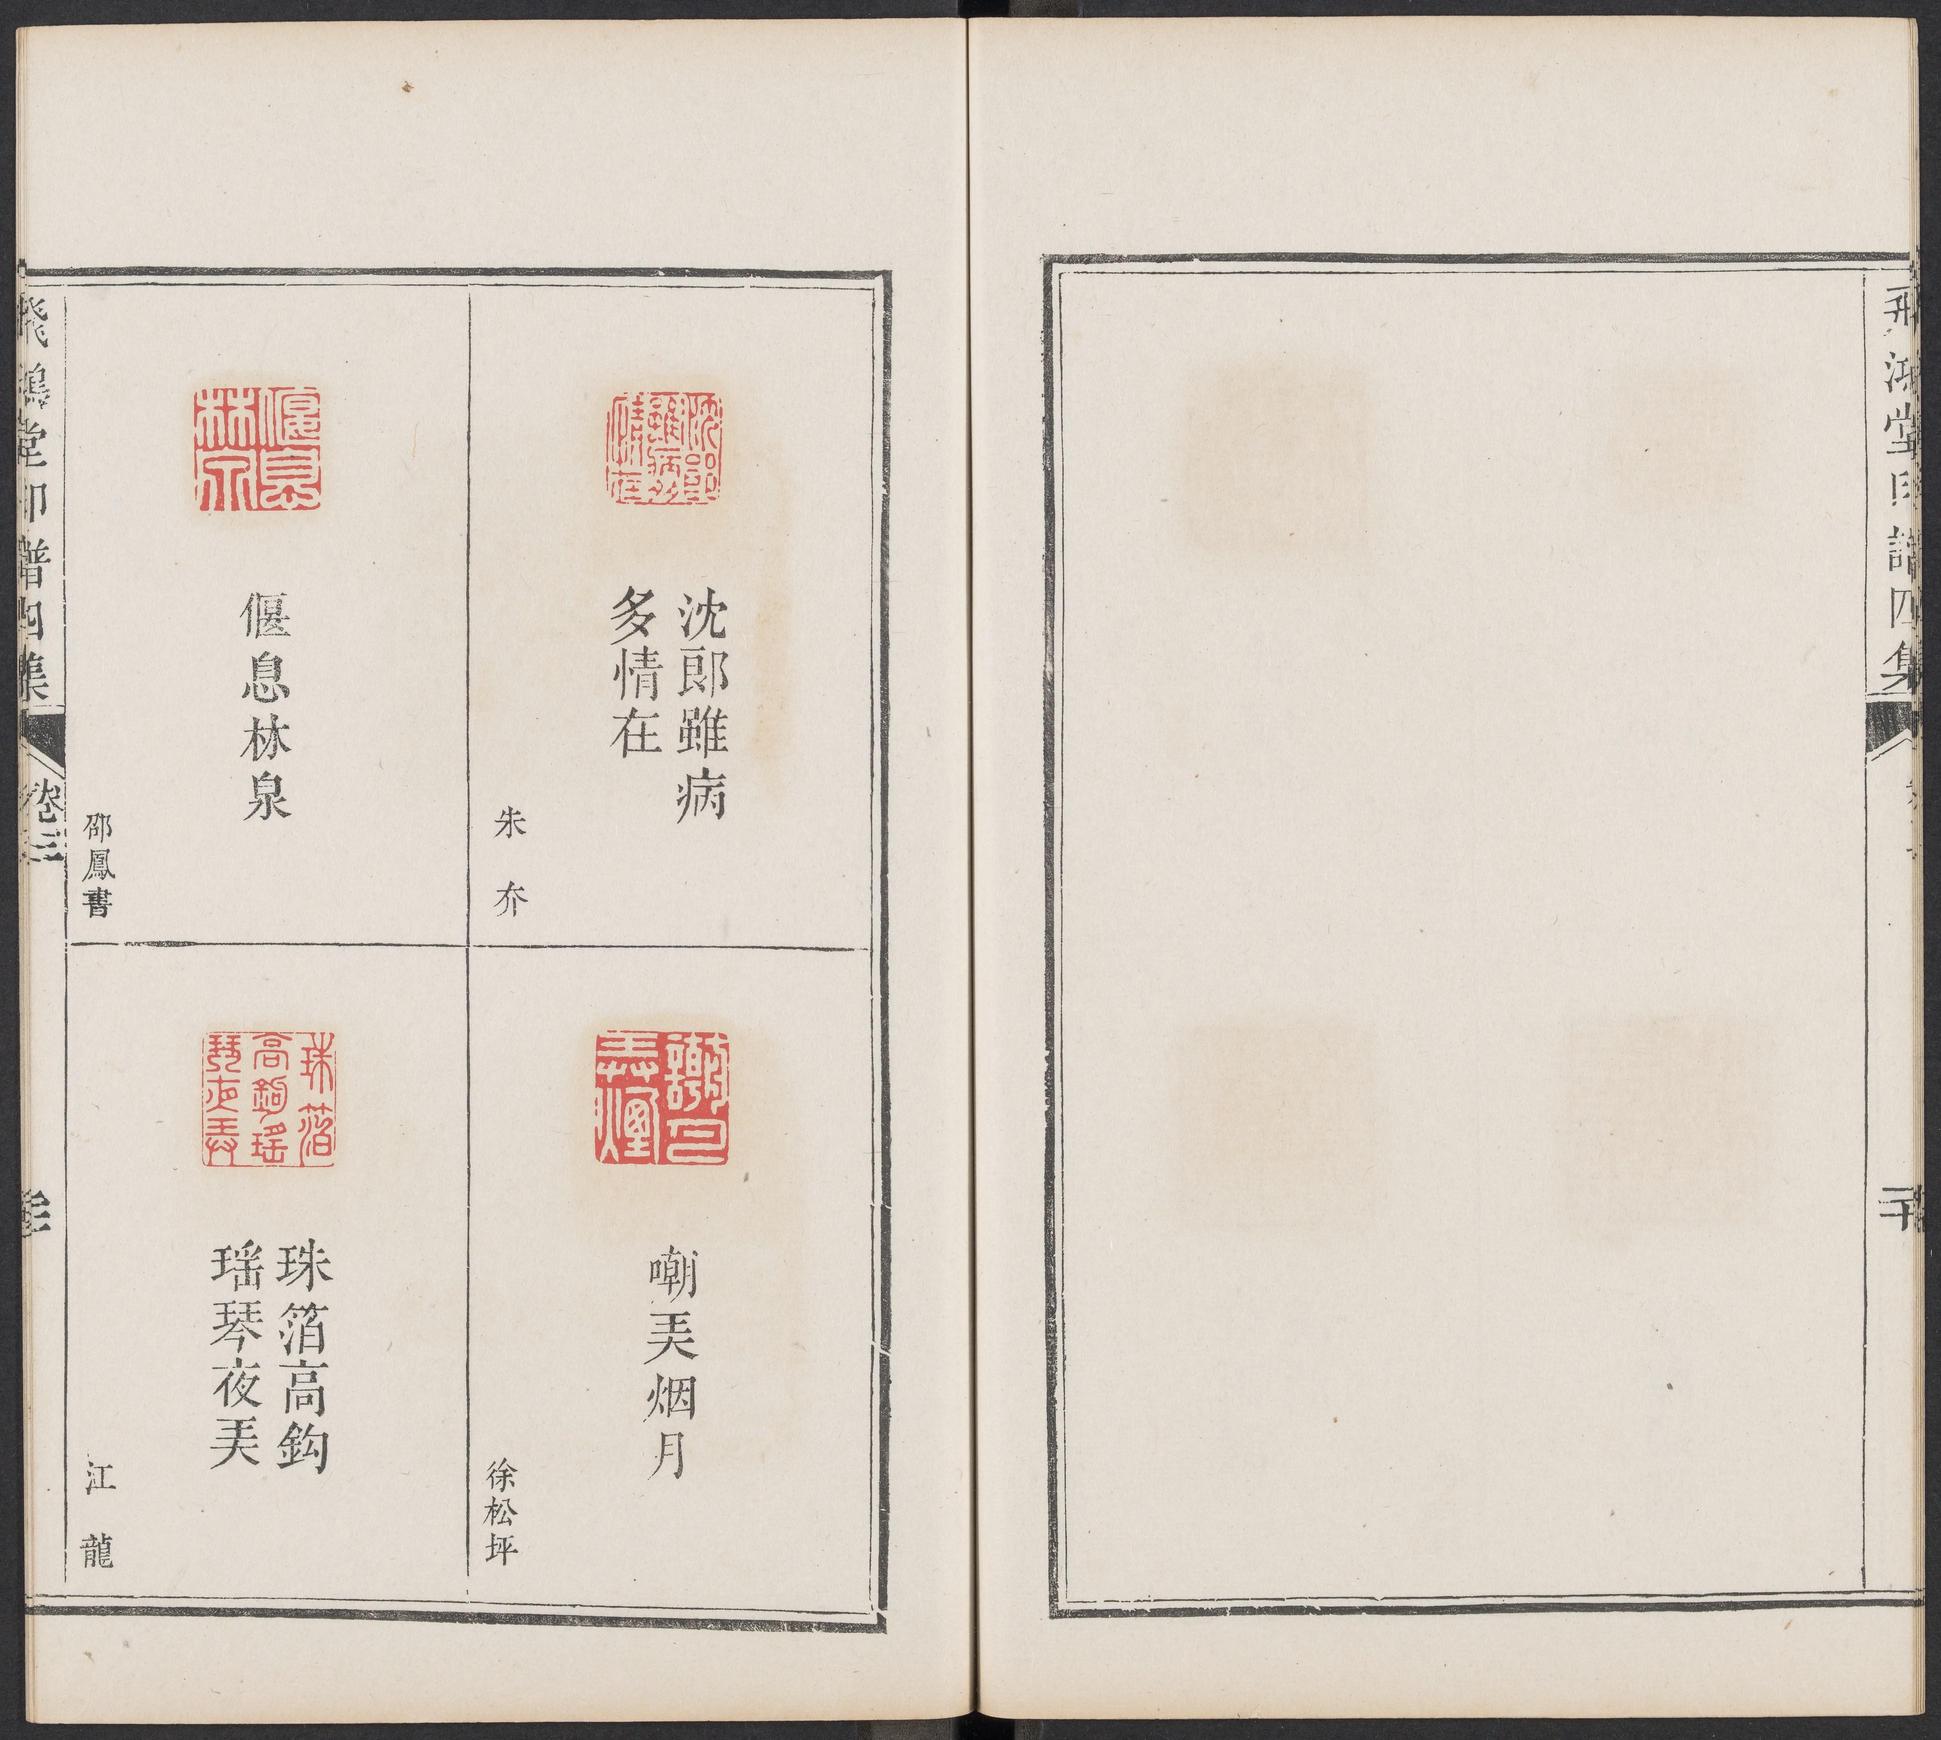 飛鴻堂印譜四集
沈郎
雖病多
情在
沈郎雖病
多情在
朱夰
謿月
弄煙
嘲弄烟月
徐松坪
偃息
林泉
偃息林泉
邵鳳書
珠箔
高鉤瑤
琴夜弄
珠箔高鈎
瑶琴夜弄
江龍
飛鴻堂印譜四集
卷三